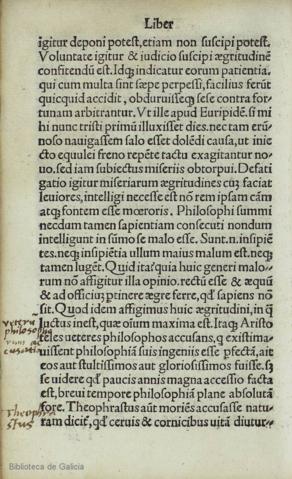 Liber
igitur deponi potest, etiam non suscipi potest.
Voluntate igitur & iudicio suscipi ægritudinē
confitendū est. Idq; indicatur eorum patientia,
qui cum multa sint sæpe perpessi, facilius ferūt
quicquid accidit, obduruisseq; sese contra for-
tunam arbitrantur. Vt ille apud Euripidē. si mi
hi nunc tristi primū illuxisset dies. nec tam erū
noso nauigassem salo esset dolēdi causa, ut inie
cto equulei freno repēte tactu exagitantur no-
uo. sed iam subiectus miseriis obtorpui. Defati
gatio igitur miseriarum ægritudines cū faciat
leuiores, intelligi necesse est nō rem ipsam cām
atq; fontem esse mœroris. Philosophi summi
necdum tamen sapientiam consecuti nondum
intelligunt in sūmo se malo esse. Sunt. n. insipiē
tes. neq; insipiētia ullum maius malum est. neq;
tamen lugēt. Quid ita? quia huic generi malo-
rum nō affigitur illa opinio. rectū esse & æquū
& ad officiū ptinere ægre ferre, qđ sapiens nō
sit. Quod idem affigimus huic ægritudini, in q
luctus inest, quæ oīum maxima est. Itaq; Aristo
teles ueteres philosophos accusans, q existima-
uissent philosophiā suis ingeniis esse pfectā, ait
eos aut stultissimos aut gloriosissimos fuisse. sȝ
se uidere qđ paucis annis magna accessio facta
est, breui tempore philosophiā plane absolutā
fore. Theophrastus aūt moriēs accusasse natu-
ram dicit, qđ ceruis & cornicibus uitā diutur-
ueteru
philosoph
accusatio
Theophra
stus
Biblioteca de Galicia